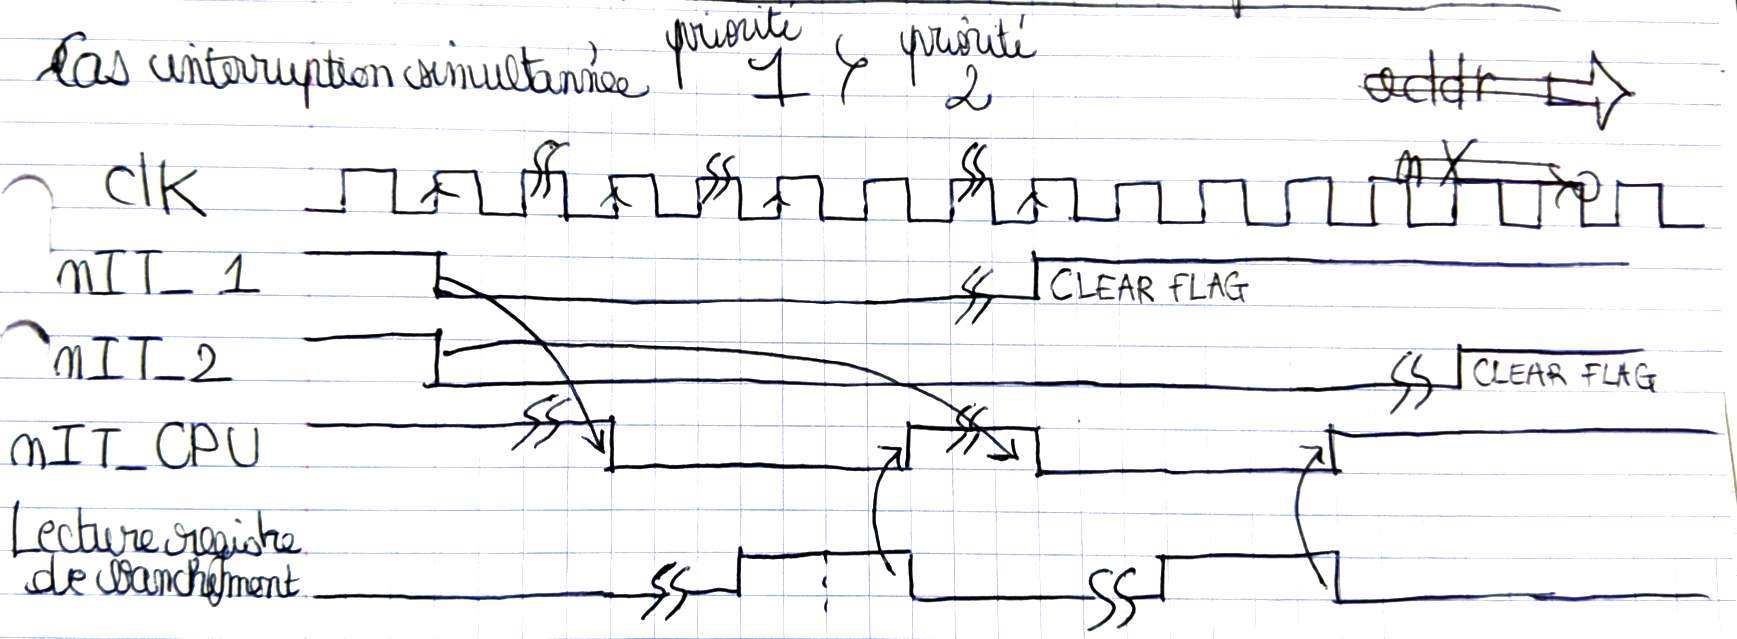 Cas interruption simultannée priorité 1 > priorité 2
addr
clk
nIT_1
CLEAR FLAG
nIT_2
CLEAR FLAG
nIT_CPU
Lecture registre
de branchement